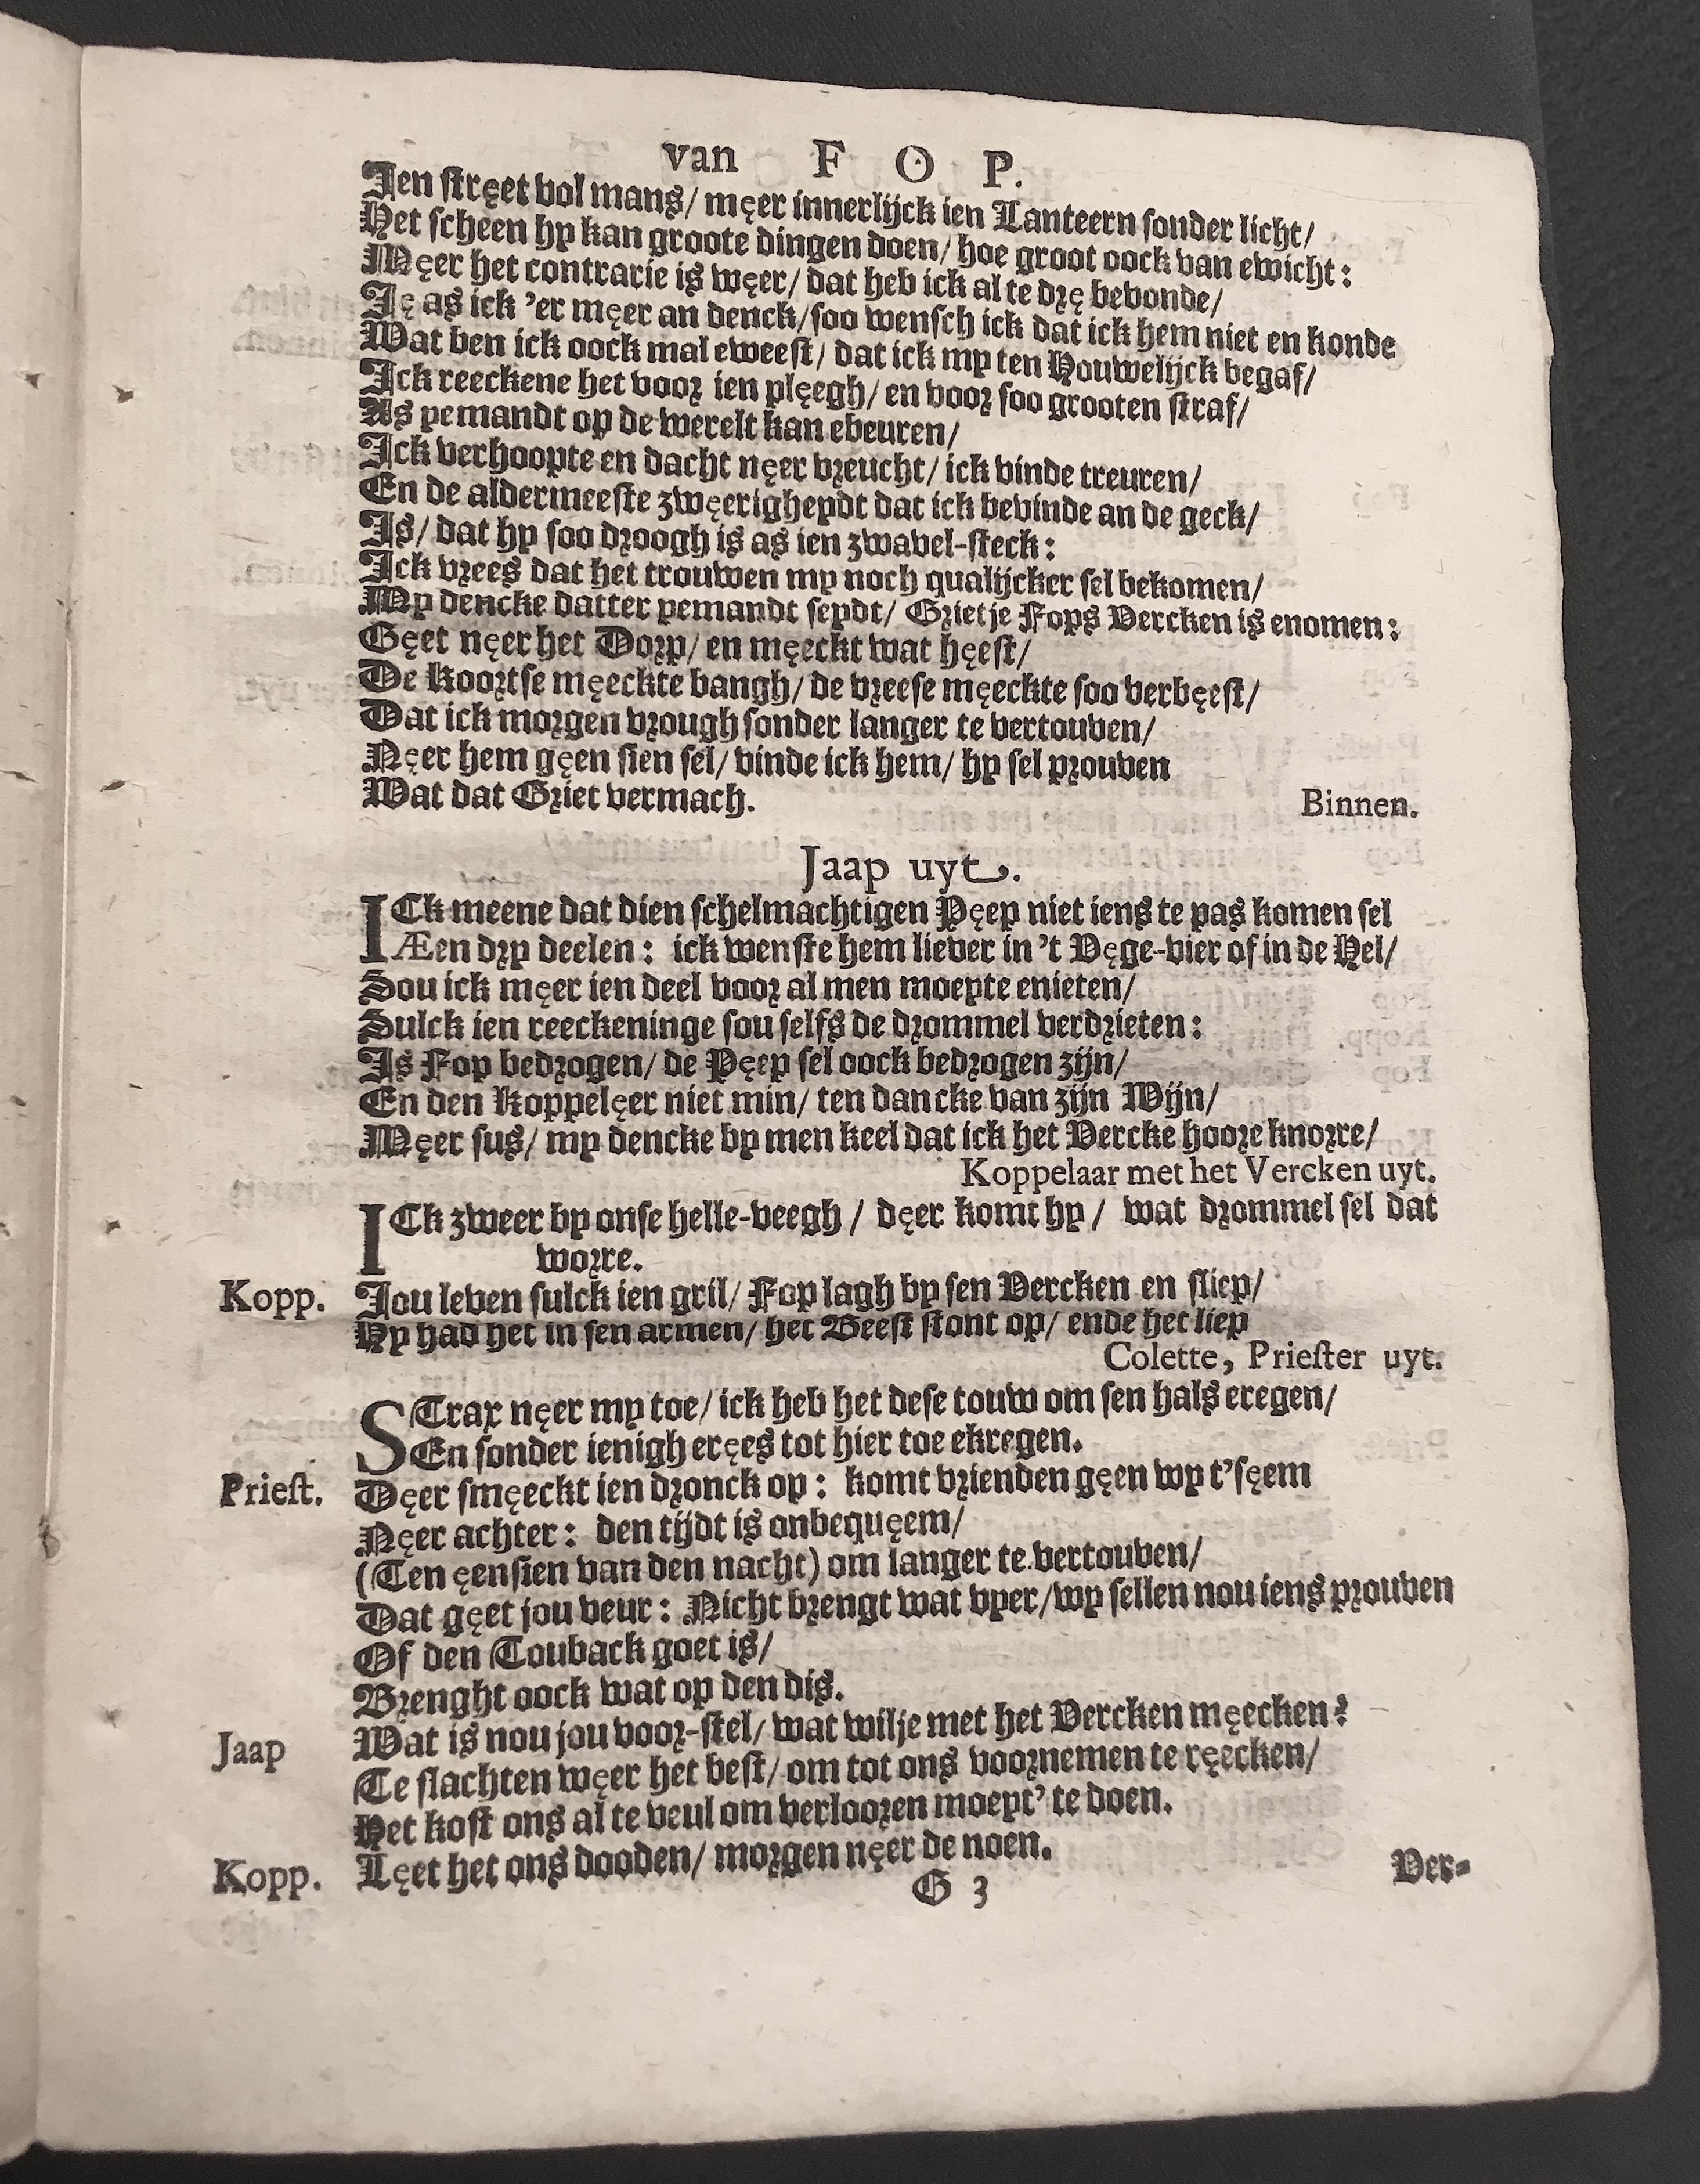 van F O P.
Ien stręet vol mans/ męer innerlijck ien Lanteern sonder licht/
Het scheen hy kan groote dingen doen/ hoe groot oock van ewicht:
Męer het contrarie is węer/ dat heb ick al te drę bevonde/
Ię as ick 'er męer an denck/ soo wensch ick dat ick hem niet en konde
Wat ben ick oock mal eweest/ dat ick my ten Houwelijck begaf/
Ick reeckene het voor ien plęegh/ en voor soo grooten straf/
As yemandt op de werelt kan ebeuren/
Ick verhoopte en dacht nęer vreucht/ ick vinde treuren/
En de aldermeeste zwęerigheydt dat ick bevinde an de geck/
Is/ dat hy soo droogh is as ien zwavel-steck:
Ick vrees dat het trouwen my noch qualijcker sel bekomen/
My dencke datter yemandt seydt/ Grietje Fops Vercken is enomen:
Gęet nęer het Dorp/ en męeckt wat hęest/
De Koortse męeckte bangh/ de vreese męeckte soo verbęest/
Dat ick morgen vrough sonder langer te vertouven/
Nęer hem gęen sien sel/ vinde ick hem/ hy sel prouven
Wat dat Griet vermach.
Binnen.
Jaap uyt.
ICk meene dat dien schelmachtigen Pęep niet iens te pas komen sel
Æen dry deelen: ick wenste hem liever in 't Vęge-vier of in de Hel/
Sou ick męer ien deel voor al men moeyte enieten/
Sulck ien reeckeninge sou selfs de drommel verdrieten:
Is Fop bedrogen/ de Pęep sel oock bedrogen zijn/
En den Koppelęer niet min/ ten dancke van zijn Wijn/
Męer sus/ my dencke by men keel dat ick het Vercke hoore knorre/
Koppelaar met het Vercken uyt.
ICk zweer by onse helle-veegh / dęer komt hy / wat drommel sel dat
worre.
Kopp. Jou leven sulck ien gril/ Fop lagh by sen Vercken en sliep/
Hy had het in sen armen/ het Beest stont op/ ende het liep
Colette, Priester uyt.
STrax nęer my toe/ ick heb het dese touw om sen hals eregen/
En sonder ienigh eręes tot hier toe ekregen.
Priest. Dęer smęeckt ien dronck op: komt vrienden gęen wy t'sęem
Nęer achter: den tijdt is onbequęem/
(Ten ęensien van den nacht) om langer te vertouven/
Dat gęet jou veur: Nicht brengt wat vyer/ wy sellen nou iens prouven
Of den Touback goet is/
Brenght oock wat op den dis.
Jaap Wat is nou jou voor-stel/ wat wilje met het Vercken męecken?
Te slachten węer het best/ om tot ons voornemen te ręecken/
Het kost ons al te veul om verlooren moeyt' te doen.
Kopp. Lęet het ons dooden/ morgen nęer de noen.
G 3 Ver-